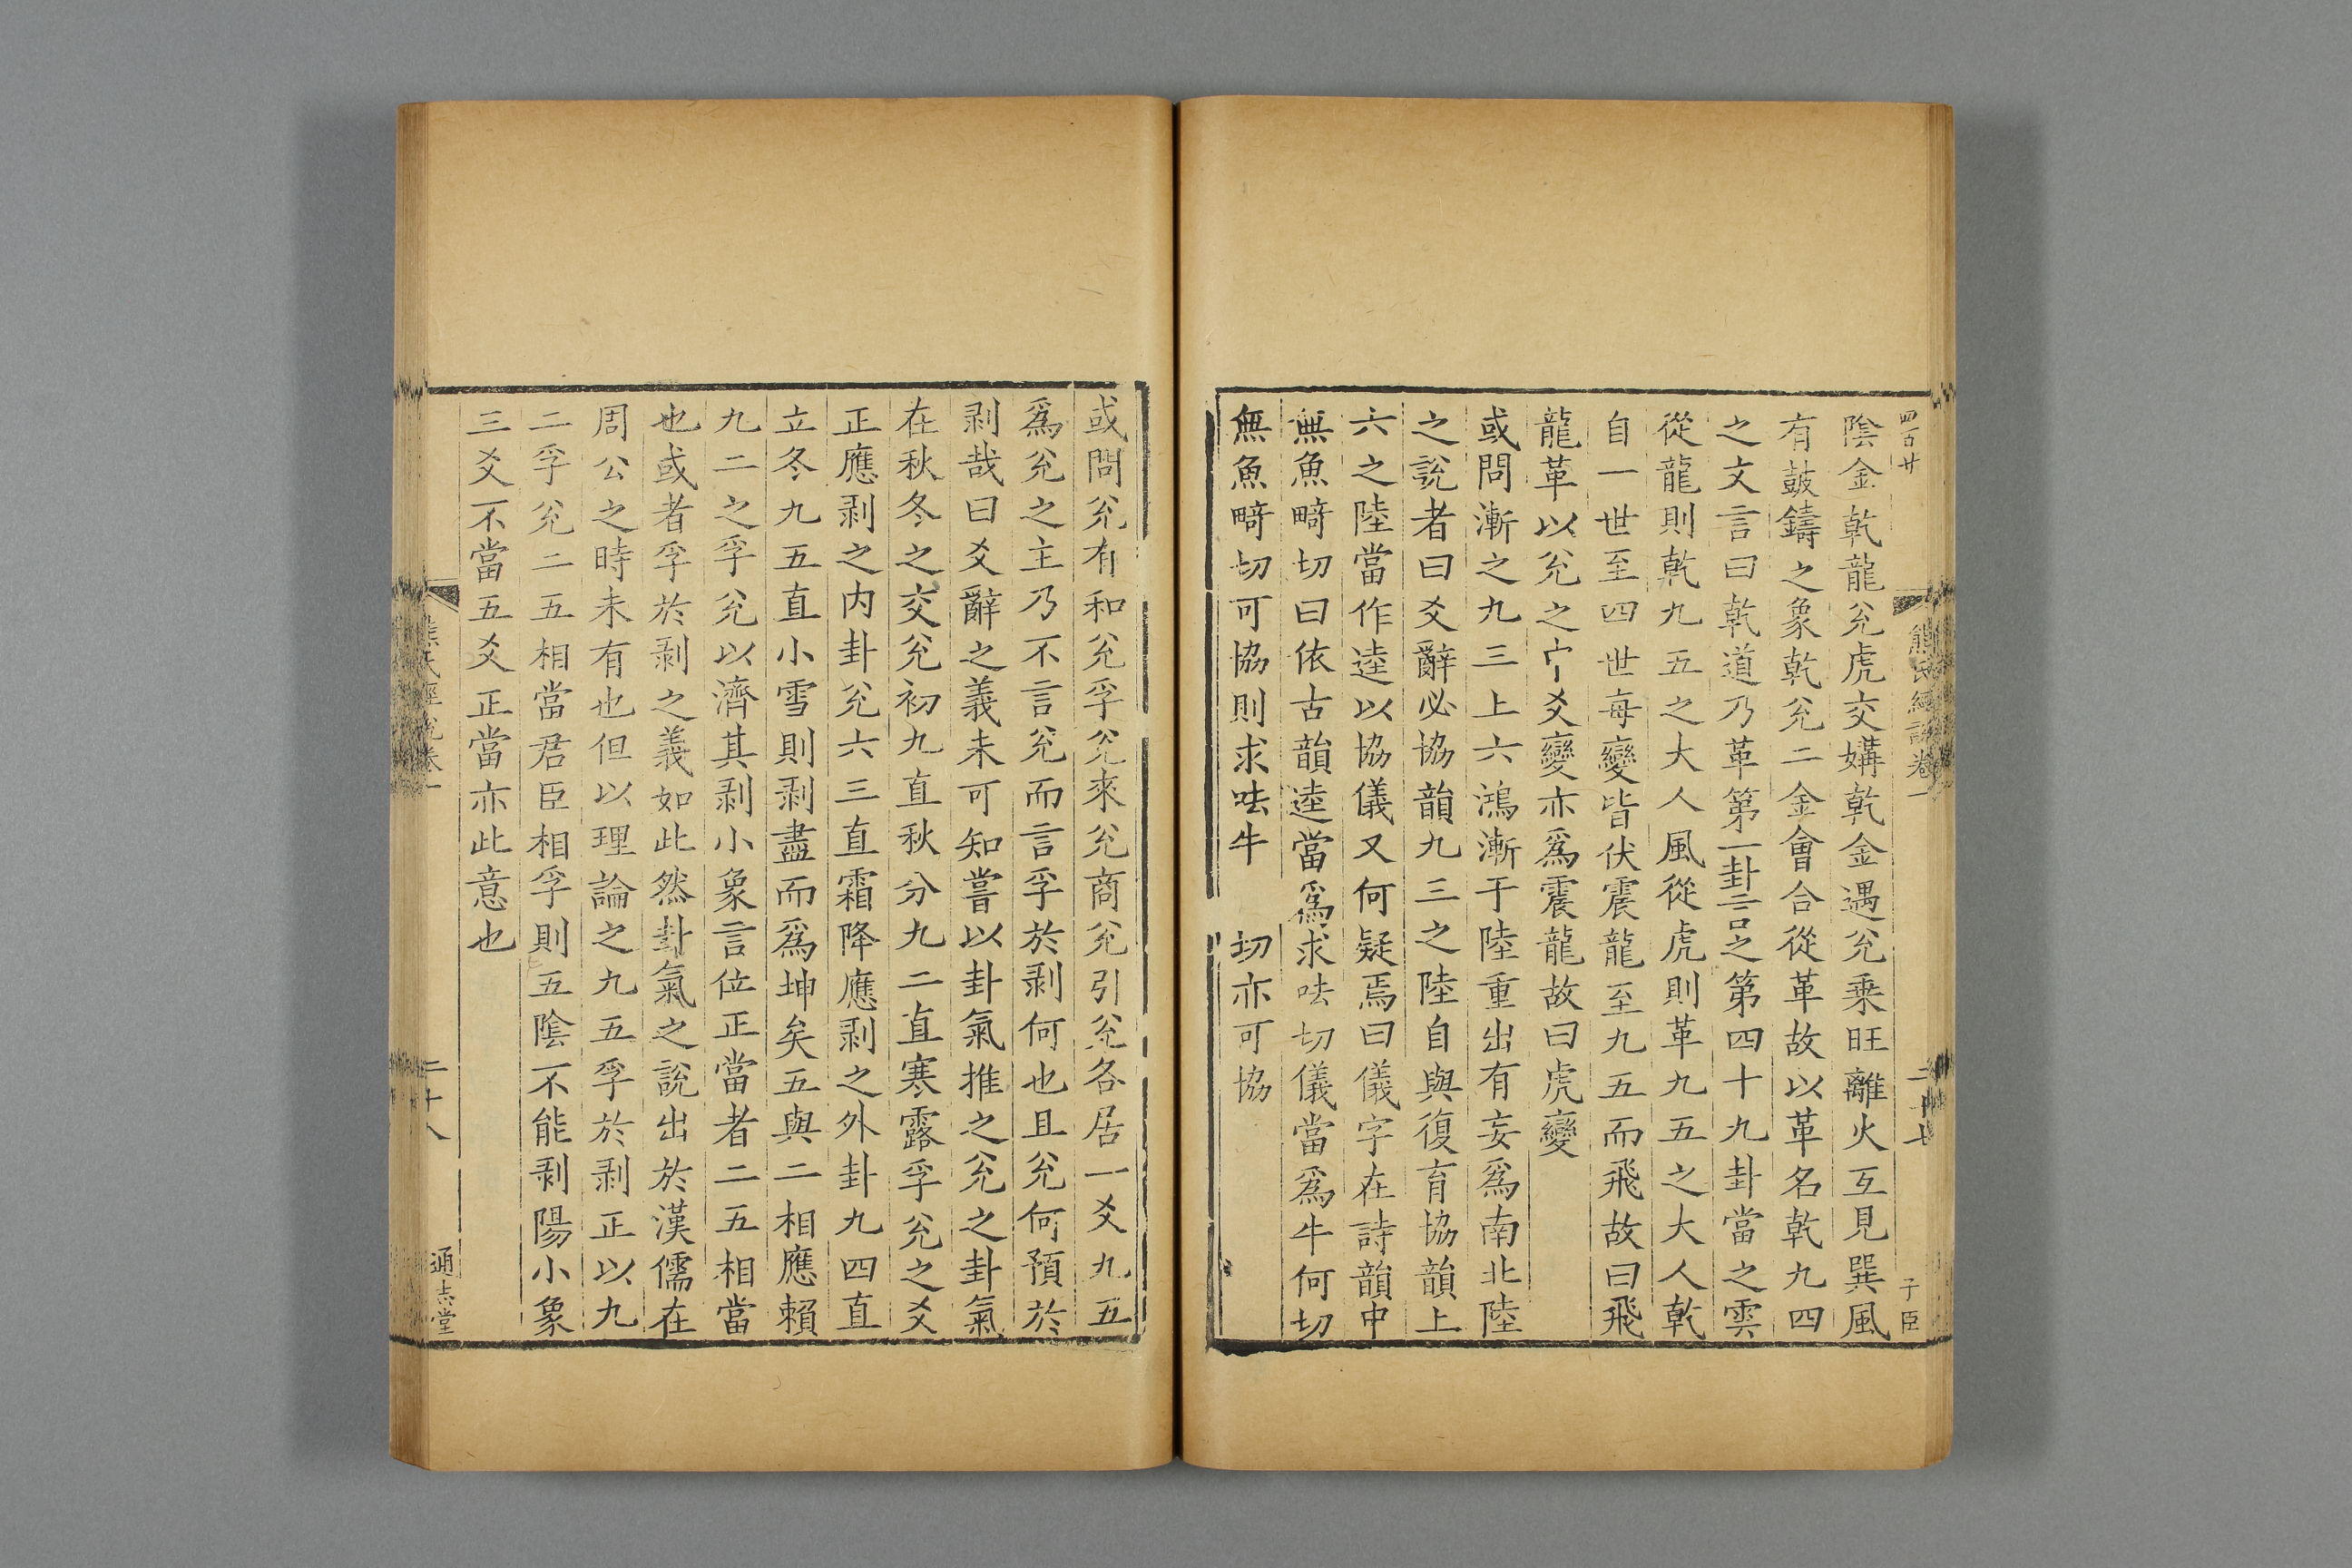 四百廿
熊氏經說卷一
二十七
子臣
陰金乾龍兊虎交媾乾金遇兊乘旺離火互見巽風
有鼓鑄之象乾兊二金會合從革故以革名乾九四
之文言曰乾道乃革第一卦言之第四十九卦當之雲
從龍則乾九五之大人風從虎則革九五之大人乾
自一世至四世每變皆伏震龍至九五而飛故曰飛
龍革以兊之爻變亦爲震龍故曰虎變
或問漸之九三上六鴻漸于陸重出有妄爲南北陸
之說者曰爻辭必協韻九三之陸自與復育協韻上
六之陸當作逵以協儀又何疑焉曰儀字在詩韻中
無魚畸切曰依古韻逵當爲求呿切儀當爲牛何切
無魚畸切可協則求呿牛 切亦可協
或問兊有和兊孚兊來兊商兊引兊各居一爻九五
爲兊之主乃不言兊而言孚於剥何也且兊何預於
剥哉曰爻辭之義未可知嘗以卦氣推之兊之卦氣
在秋冬之交兊初九直秋分九二直寒露孚兊之爻
正應剥之内卦兊六三直霜降應剥之外卦九四直
立冬九五直小雪則剥盡而爲坤矣五與二相應賴
九二之孚兊以濟其剥小象言位正當者二五相當
也或者孚於剥之義如此然卦氣之說出於漢儒在
周公之時未有也但以理論之九五孚於剥正以九
二孚兊二五相當君臣相孚則五陰不能剥陽小象
三爻不當五爻正當亦此意也
熊氏經說卷一
二十八
通志堂